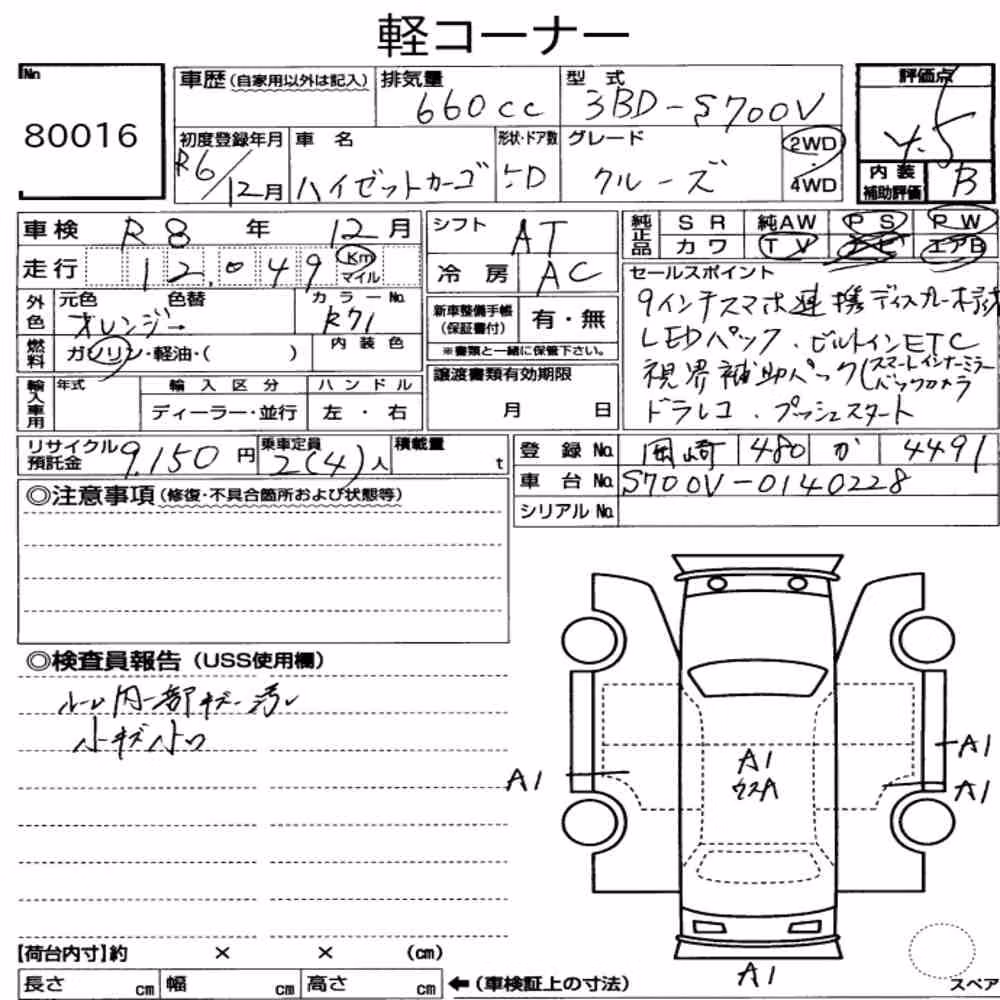 軽コーナー
No 80016
車歴(自家用以外は記入) 排気量 660cc 型式 3BD-S700V
初度登録年月 R6/12月 車名 ハイゼットカーゴ 形状・ドア数 5D グレード クルーズ 2WD・4WD
評価点 4.5
内装補助評価 B
車検 R8年 12月
走行 12.049 Km マイル
シフト AT
冷房 AC
純正品 SR 純AW PS PW
カワ TV ナビ エアB
外色 元色 オレンジ→ 色替 カラーNo. R71
燃料 ガソリン・軽油・( ) 内装色
新車整備手帳(保証書付) 有・無
※書類と一緒に保管下さい。
セールスポイント
9インチスマホ連携ディスプレー
LEDパック・ビルトインETC
視界補助パック(スマートインナーミラー
バックカメラ
ドラレコ・プッシュスタート
輸入車用 年式 輸入区分 ディーラー・並行 ハンドル 左・右
譲渡書類有効期限 月 日
リサイクル預託金 9,150円 乗車定員 2(4)人 積載量 t
登録No. 岡崎 480 か 4491
車台No. S700V-0140228
シリアルNo.
◎注意事項(修復・不具合箇所および状態等)
◎検査員報告(USS使用欄)
ルーム内一部キズ・汚レ
小キズ小凹
A1
A1
ウスA
A1
A1
A1
スペア
【荷台内寸】約 × × (cm)
長さ cm 幅 cm 高さ cm ←(車検証上の寸法)